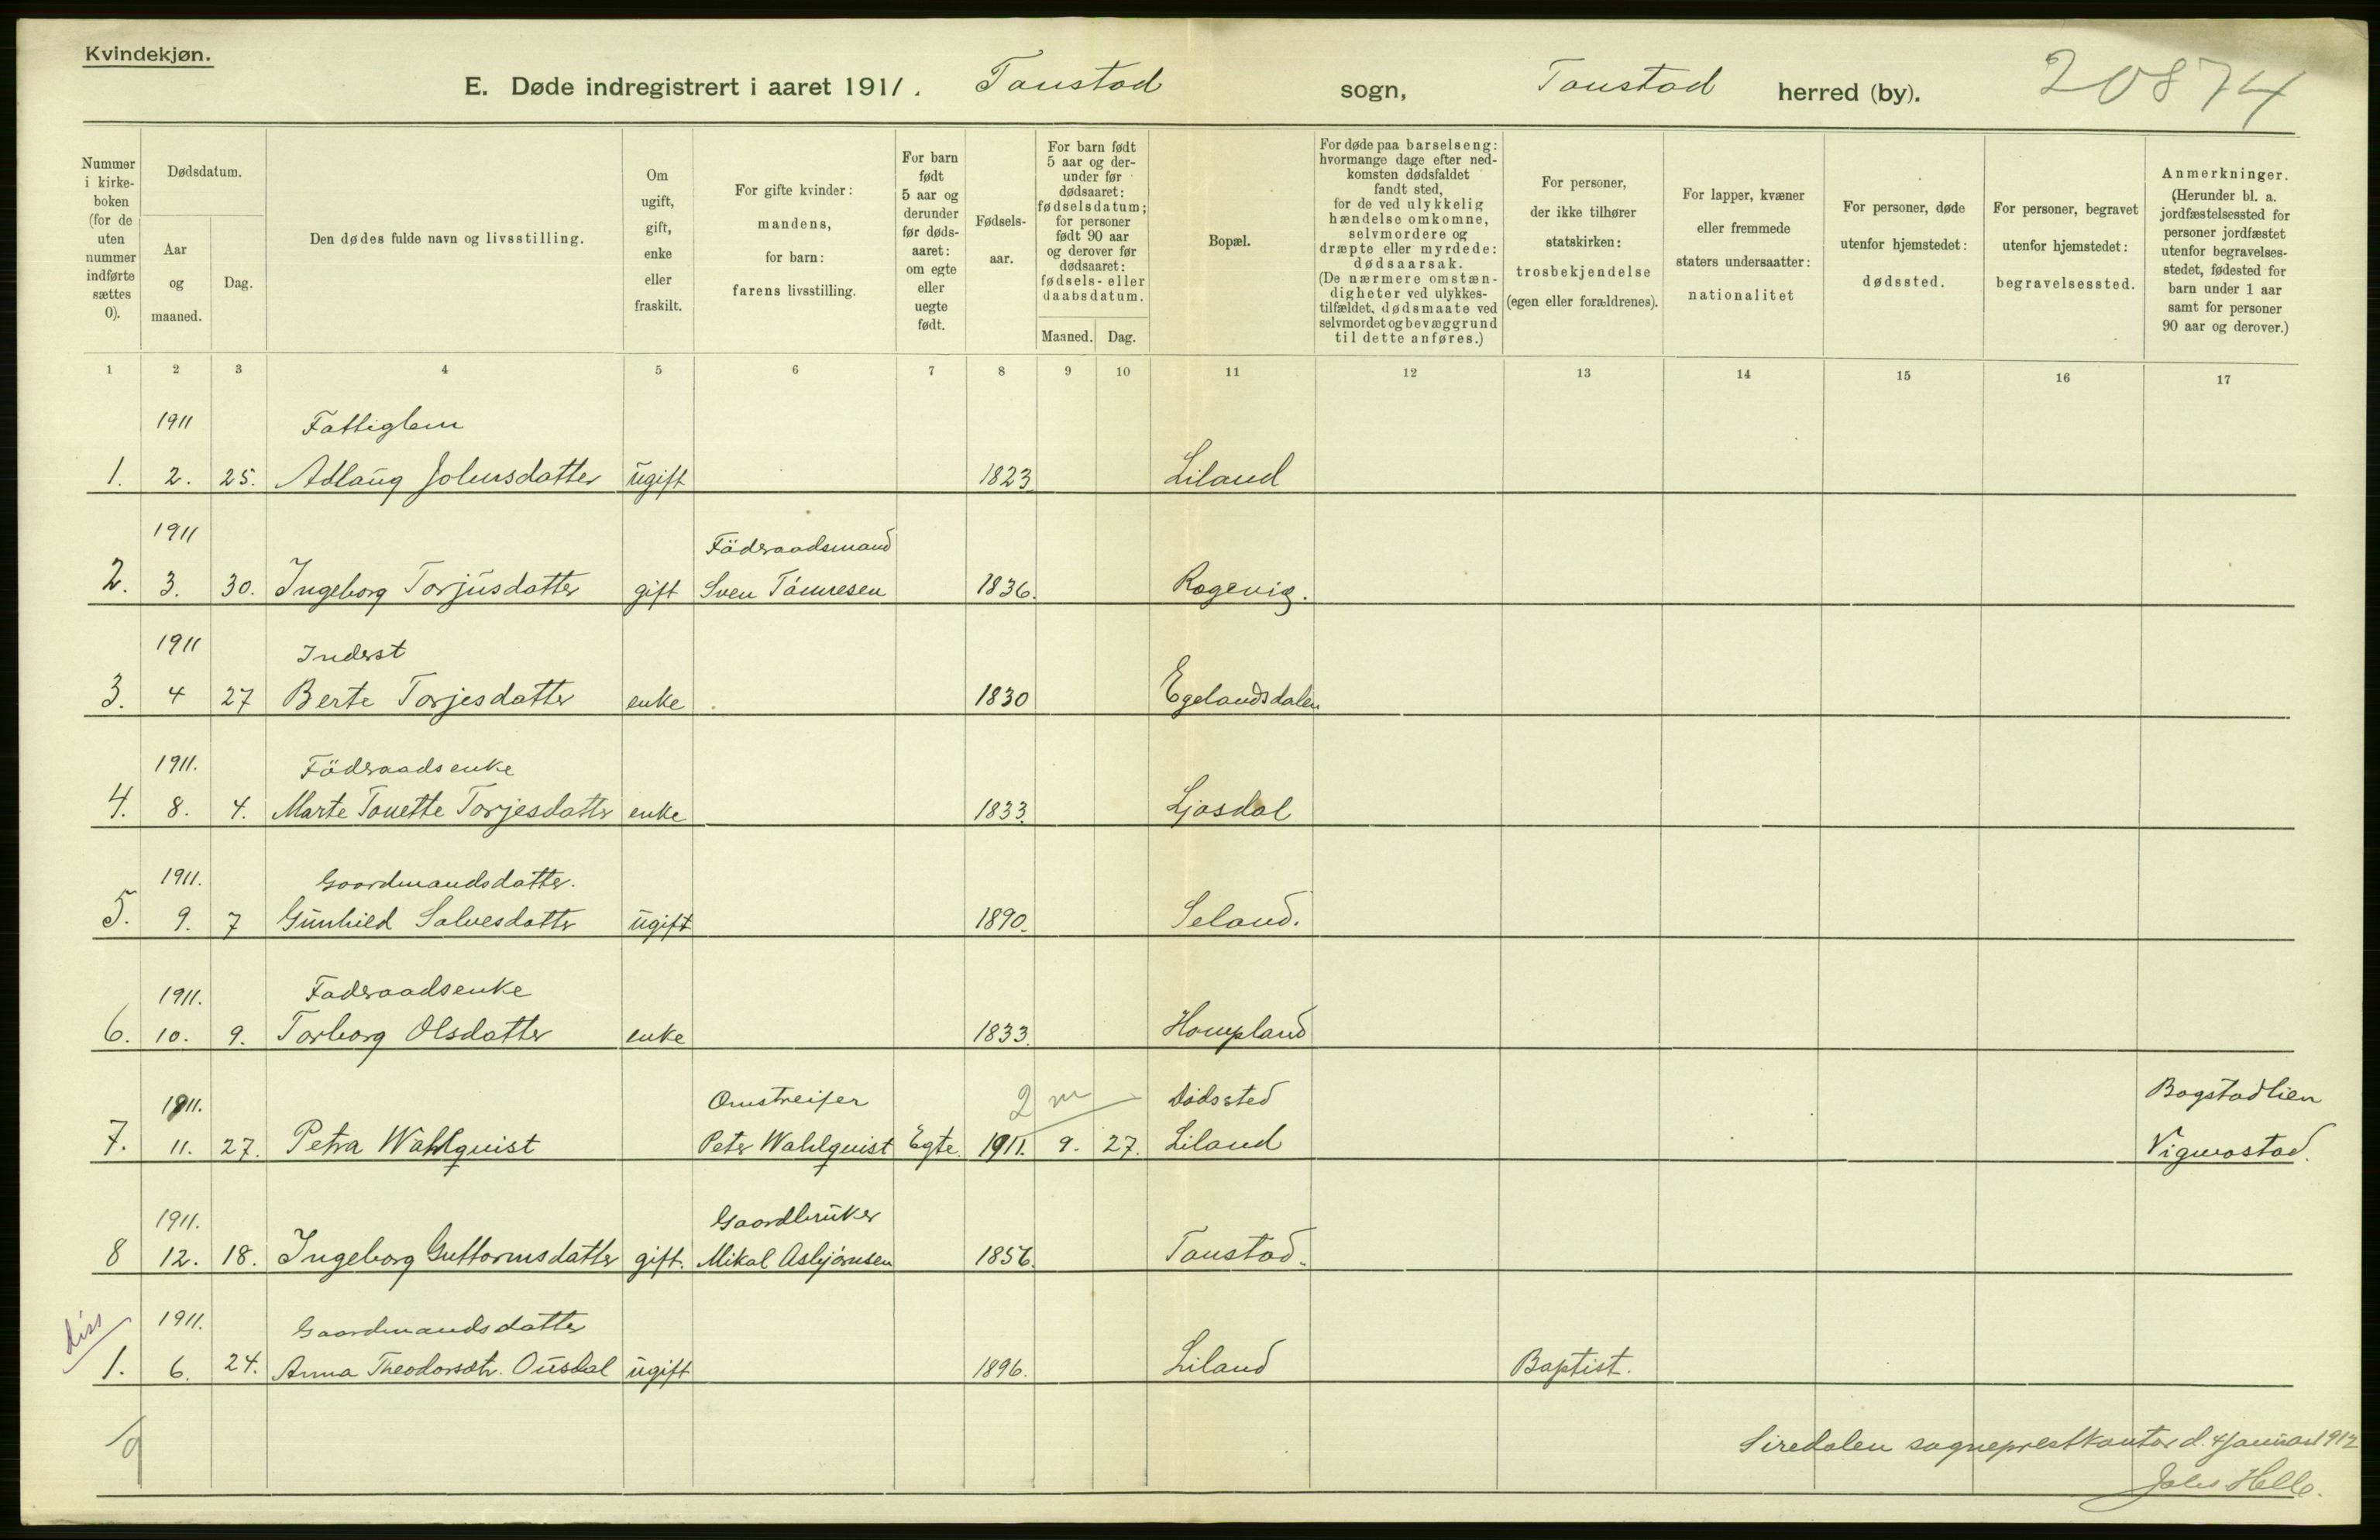 Kvindekjøn.
E. Døde indregistrert i aaret 1911. Tonstad sogn, Tonstad herred (by). 20874
Nummer i kirkeboken (for de uten nummer indførte sættes 0).
Dødsdatum.
Aar og maaned.
Dag.
Den dødes fulde navn og livsstilling.
Om ugift, gift, enke eller fraskilt.
For gifte kvinder: mandens, for barn: farens livsstilling.
For barn født 5 aar og derunder før dødsaaret: om egte eller uegte født.
Fødselsaar.
For barn født 5 aar og derunder før dødsaaret: fødselsdatum; for personer født 90 aar og derover før dødsaaret: fødsels- eller daabsdatum.
Maaned. Dag.
Bopæl.
For døde paa barselseng: hvormange dage efter nedkomsten dødsfaldet fandt sted, for de ved ulykkelig hændelse omkomne, selvmordere og dræpte eller myrdede: dødsaarsak. (De nærmere omstændigheter ved ulykkestilfældet, dødsmaate ved selvmordet og bevæggrund til dette anføres.)
For personer, der ikke tilhører statskirken: trosbekjendelse (egen eller forældrenes).
For lapper, kvæner eller fremmede staters undersaatter: nationalitet
For personer, døde utenfor hjemstedet: dødssted.
For personer, begravet utenfor hjemstedet: begravelsessted.
Anmerkninger. (Herunder bl. a. jordfæstelsessted for personer jordfæstet utenfor begravelsesstedet, fødested for barn under 1 aar samt for personer 90 aar og derover.)
1 2 3 4 5 6 7 8 9 10 11 12 13 14 15 16 17
1911 Fattiglem
1. 2. 25. Adlaug Johnsdatter ugift 1823 Liland
1911 Föderaadsmand
2. 3. 30. Ingeborg Torjusdatter gift Sven Tónnesen 1836. Rogevig.
1911 Inderst
3. 4 27 Berte Torjesdatter enke 1830 Egelandsdalen
1911. Föderaadsenke
4. 8. 4. Marte Tonette Torjesdatter enke 1833. Ljosdal
1911. Gaardmandsdatter.
5. 9. 7 Gunhild Salvesdatter ugift 1890. Seland.
1911. Föderaadsenke
6. 10. 9. Torborg Olsdatter enke 1833. Hompland
1911. Omstreifer 2 m Dödssted Bogstadlien
7. 11. 27. Petra Wahlquist Peter Wahlquist Egte. 1911. 9. 27. Liland Vigmostad.
1911. Gaardbruker
8 12. 18. Ingeborg Guttormsdatter gift. Mikal Asbjörnsen 1856. Tonstad.
diss 1911. Gaardmandsdatter
1. 6. 24. Anna Theodorsdtr. Ousdal ugift 1896. Liland Baptist.
9
Siredalen sogneprestkontor d. 4 januar 1912
Helle.